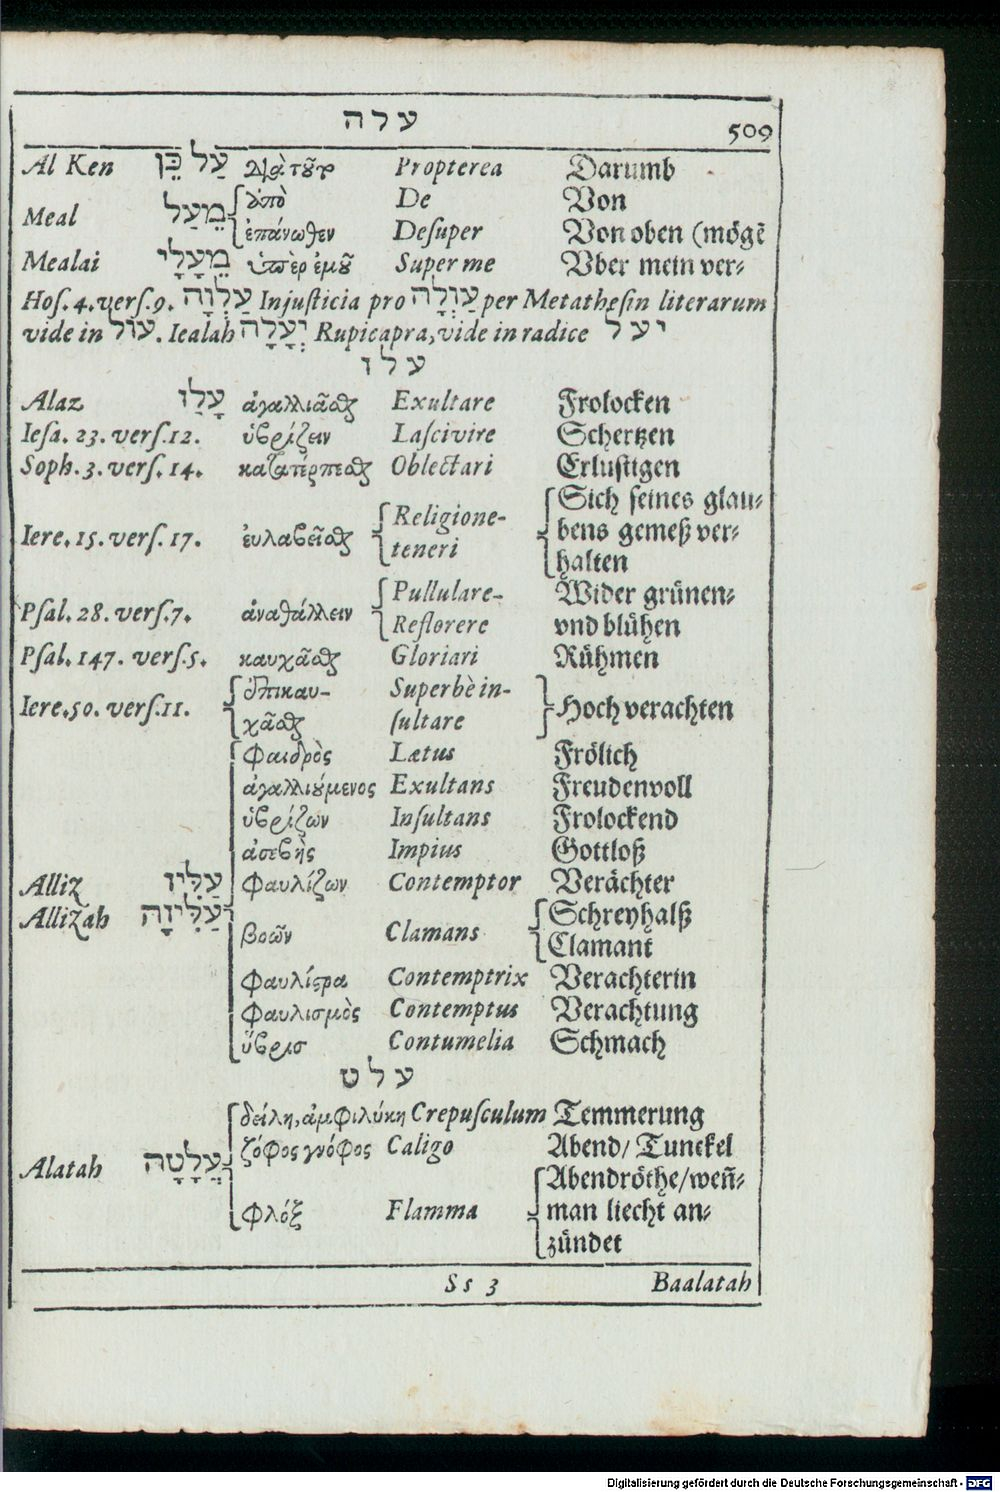 עלה 509
Al Ken עַל כֵּן Διὰ τοῦτο Propterea Darumb
Meal מֵעַל ἀπὸ De Von
ἐπάνωθεν Deſuper Von oben (mögẽ
Mealai מֵעָלָי ὑπὲρ ἐμοῦ Super me Vber mein ver-
Hoſ. 4. verſ. 9. עַלְוָה Injuſticia pro עַוְלָה per Metatheſin literarum
vide in עול. Iealah יְעָלָה Rupicapra, vide in radice יעל
עלז
Alaz עָלַז ἀγαλλιᾶσθαι Exultare Frolocken
Ieſa. 23. verſ. 12. ὑβρίζειν Laſcivire Schertzen
Soph. 3. verſ. 14. κατατέρπεσθαι Oblectari Erluſtigen
Iere. 15. verſ. 17. ἐυλαβεῖσθαι Religione- Sich ſeines glau-
teneri bens gemeß ver-
halten
Pſal. 28. verſ. 7. ἀναθάλλειν Pullulare- Wider grünen-
Reflorere vnd blühen
Pſal. 147. verſ. 5. καυχᾶσθαι Gloriari Rühmen
Iere. 50. verſ. 11. ἐπικαυ- Superbè in-
χᾶσθαι ſultare Hoch verachten
φαιδρὸς Lætus Frölich
ἀγαλλιώμενος Exultans Freudenvoll
ὑβρίζων Inſultans Frolockend
ἀσεβὴς Impius Gottloß
Alliz עַלִּיז φαυλίζων Contemptor Verächter
Allizah עַלִּיזָה βοῶν Clamans Schreyhalß
Clamant
φαυλίστρα Contemptrix Verachterin
φαυλισμὸς Contemptus Verachtung
ὕβρις Contumelia Schmach
עלט
δείλη, ἀμφιλύκη Crepuſculum Temmerung
ζόφος γνόφος Caligo Abend/ Tunckel
Alatah עֲלָטָה φλόξ Flamma Abendröthe/ weñ-
man liecht an-
zündet
Ss 3 Baalatah
Digitalisierung gefördert durch die Deutsche Forschungsgemeinschaft - DFG